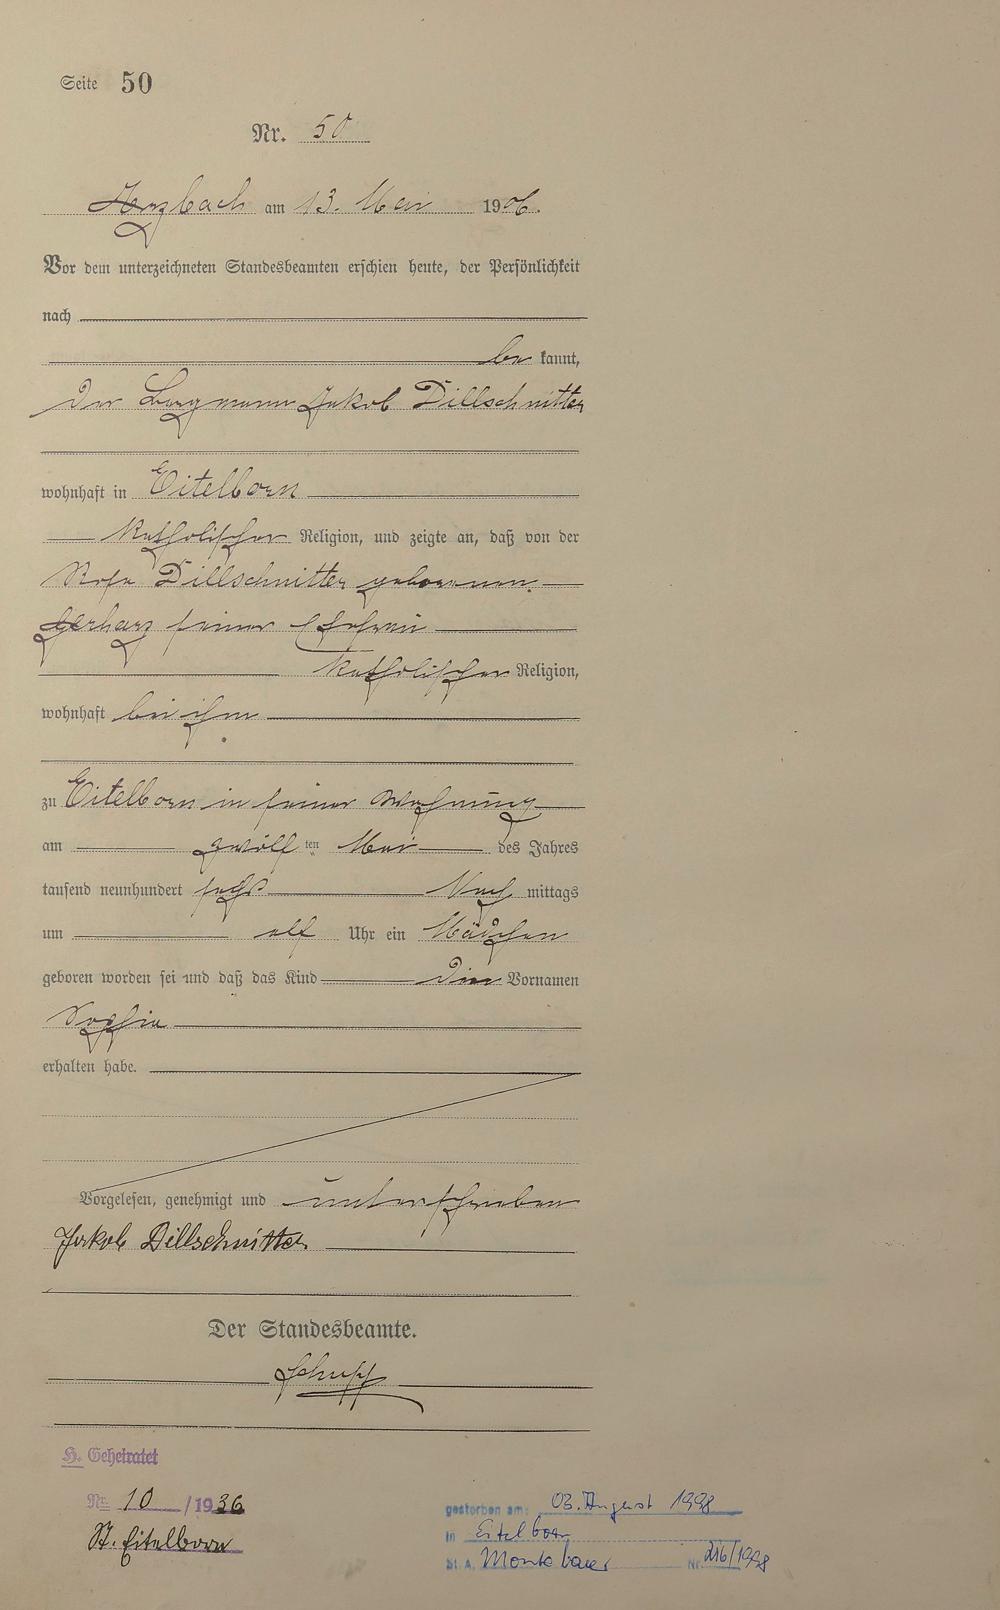 Seite 50
Nr. 50
Arzbach am 13. Mai 1906.
Vor dem unterzeichneten Standesbeamten erschien heute, der Persönlichkeit
nach
be kannt,
der Bergmann Jakob Dillschnitter
wohnhaft in Eitelborn
katholischer Religion, und zeigte an, daß von der
Rosa Dillschnitter geborenen
Gerharz seiner Ehefrau
katholischer Religion,
wohnhaft bei ihm
zu Eitelborn in seiner Wohnung
am zwölf ten Mai des Jahres
tausend neunhundert sechs Nach mittags
um elf Uhr ein Mädchen
geboren worden sei und daß das Kind den Vornamen
Sophia
erhalten habe.
Vorgelesen, genehmigt und unterschrieben
Jakob Dillschnitter
Der Standesbeamte.
Schupp
H. Geheiratet
Nr. 10 /1936
St. Eitelborn
gestorben am: 03. August 1998
in Eitelborn
St. A. Montabaur Nr. 216/1998